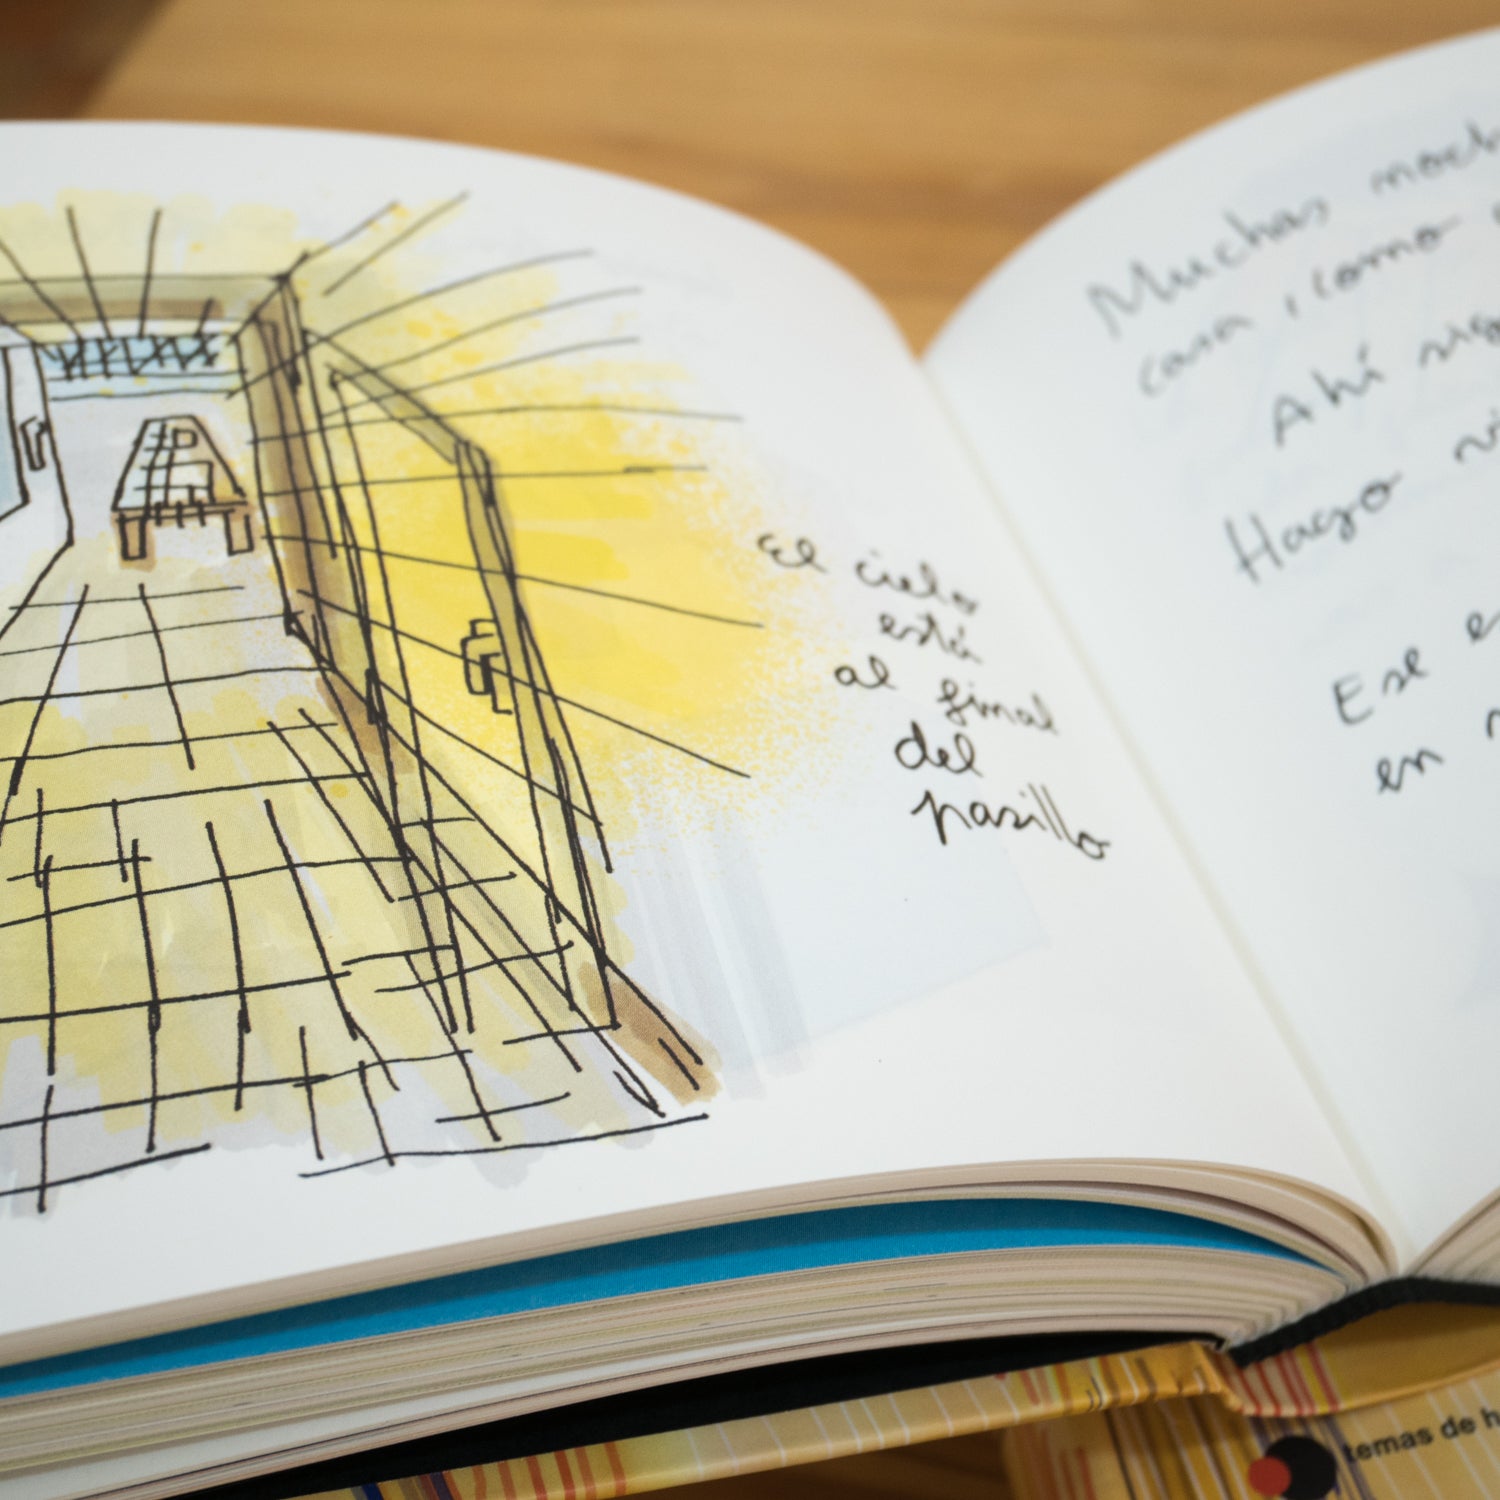 El cielo
está
al final
del
pasillo
Muchas
casa, como
Ahí
Hago
Ese
en
temas de